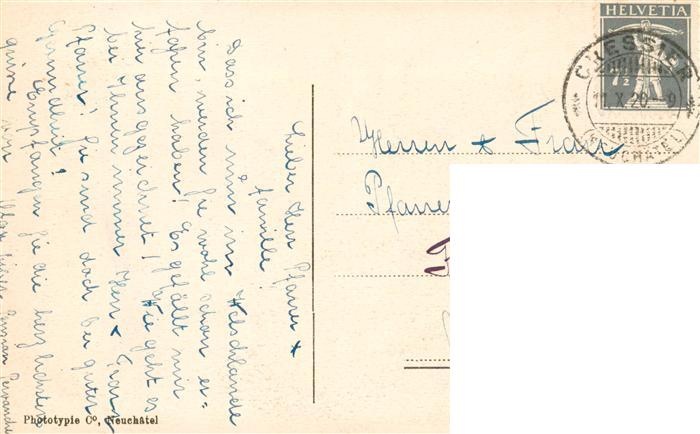 HELVETIA
7½
CRESSIER
11.X.29.-9
(NEUCHÂTEL)
Herrn & Frau
Pfarrer
Lieber Herr Pfarrer &
Familie!
Dass ich nun im Welschlande
bin, werden Sie wohl schon er=
fahren haben! Es gefällt mir
hier ausgezeichnet! Wie geht es
bei Ihnen immer Herr & Frau
Pfarrer? Sie sind doch bei guter
Gesundheit!
Empfangen Sie die herzlichsten
Grüsse von
Phototypie Cº, Neuchâtel